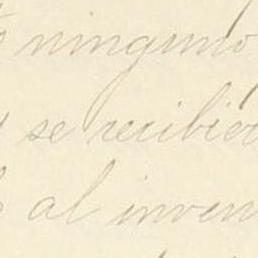 ninguno
se recibier
al inven